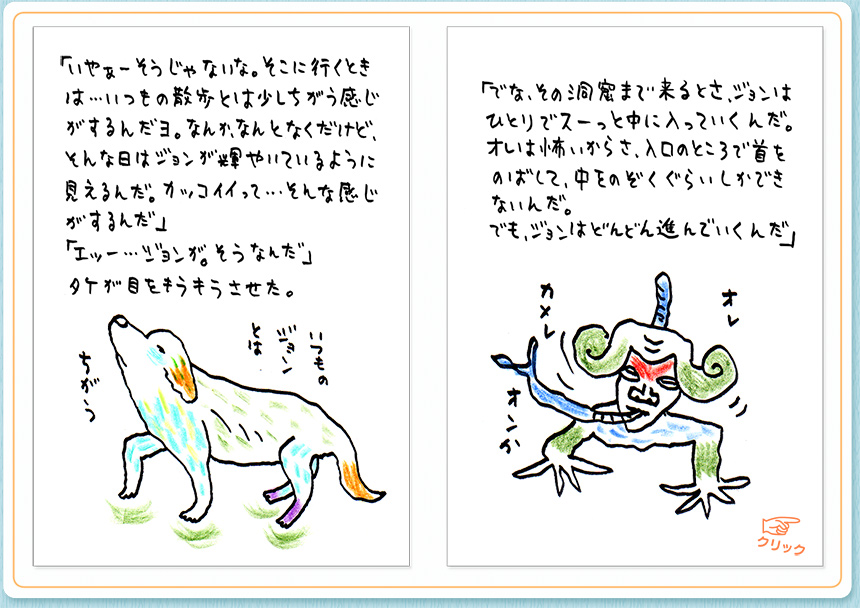 「いやぁーそうじゃないな。そこに行くとき
は…いつもの散歩とは少しちがう感じ
がするんだヨ。なんか、なんとなくだけど、
そんな日はジョンが輝やいているように
見えるんだ。カッコイイって…そんな感じ
がするんだ」
「エッー…ジョンが。そうなんだ」
タケが目をキラキラさせた。
いつもの
ジョン
とは
ちがう
「でな、その洞窟まで来るとさ、ジョンは
ひとりでスーっと中に入っていくんだ。
オレは怖いからさ、入口のところで首を
のばして、中をのぞくぐらいしかでき
ないんだ。
でも、ジョンはどんどん進んでいくんだ」
オレ
カメレ
オンか
クリック